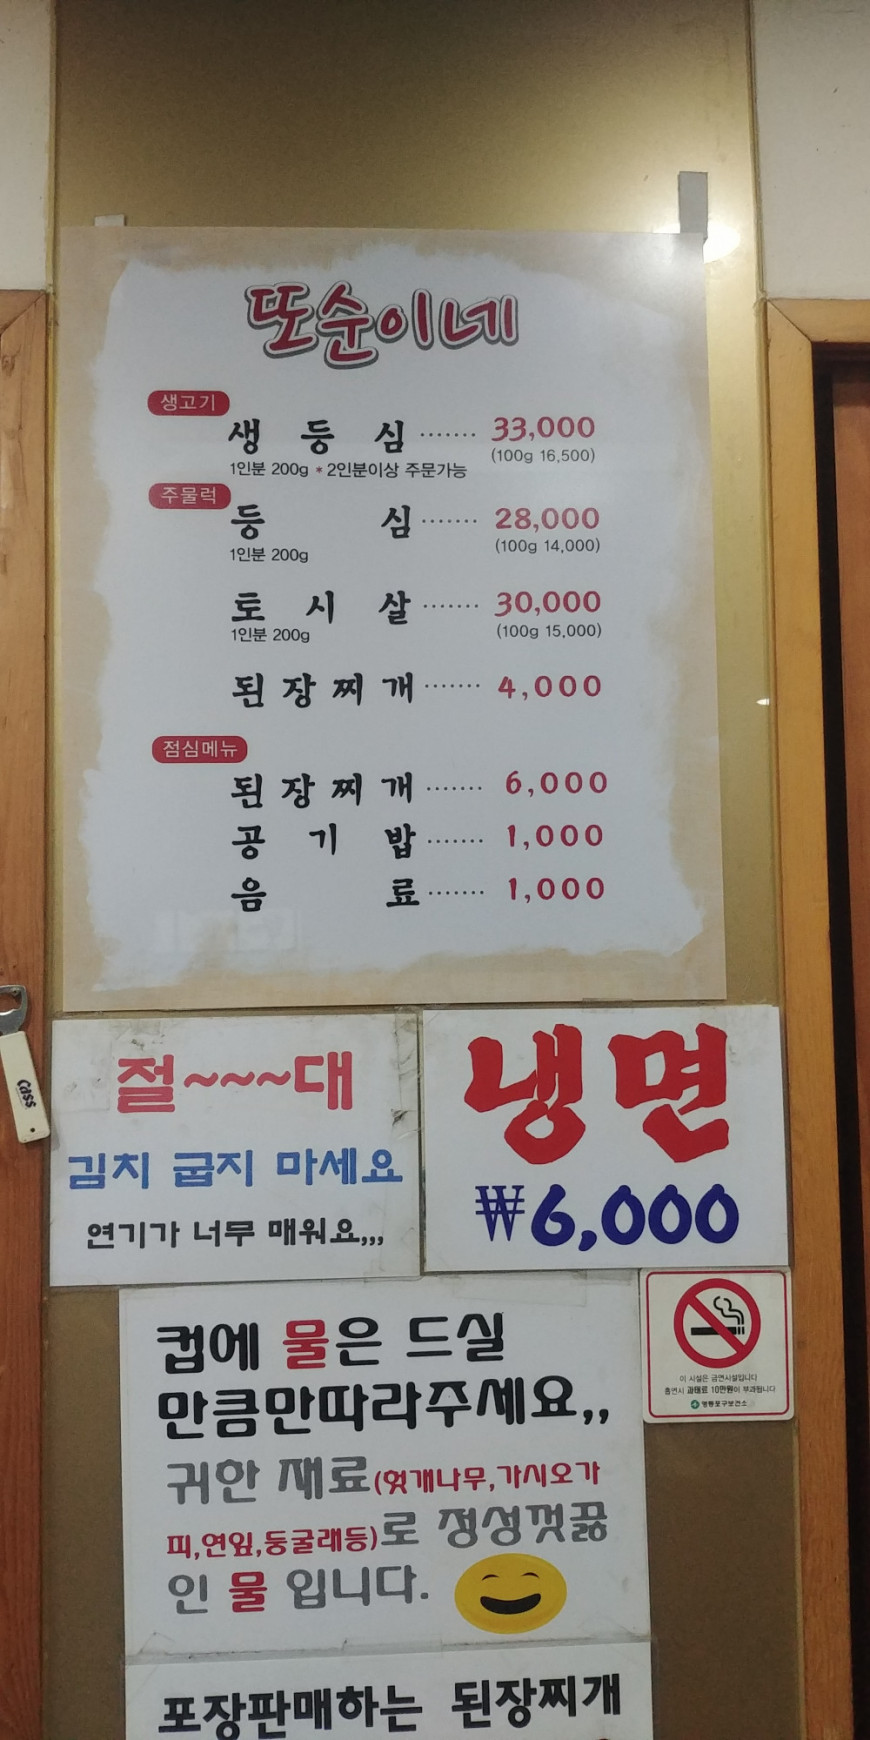 또순이네
생고기
생등심 ······· 33,000
1인분 200g *2인분이상 주문가능 (100g 16,500)
주물럭
등심 ······· 28,000
1인분 200g (100g 14,000)
토시살 ······· 30,000
1인분 200g (100g 15,000)
된장찌개 ······· 4,000
점심메뉴
된장찌개 ······· 6,000
공기밥 ······· 1,000
음료 ······· 1,000
절~~~대
김치 굽지 마세요
연기가 너무 매워요,,,
냉면
₩6,000
cass
이 시설은 금연시설입니다
흡연시 과태료 10만원이 부과됩니다
영등포구보건소
컵에 물은 드실
만큼만따라주세요,,
귀한 재료(헛개나무,가시오가
피,연잎,둥굴래등)로 정성껏끓
인 물 입니다.
포장판매하는 된장찌개